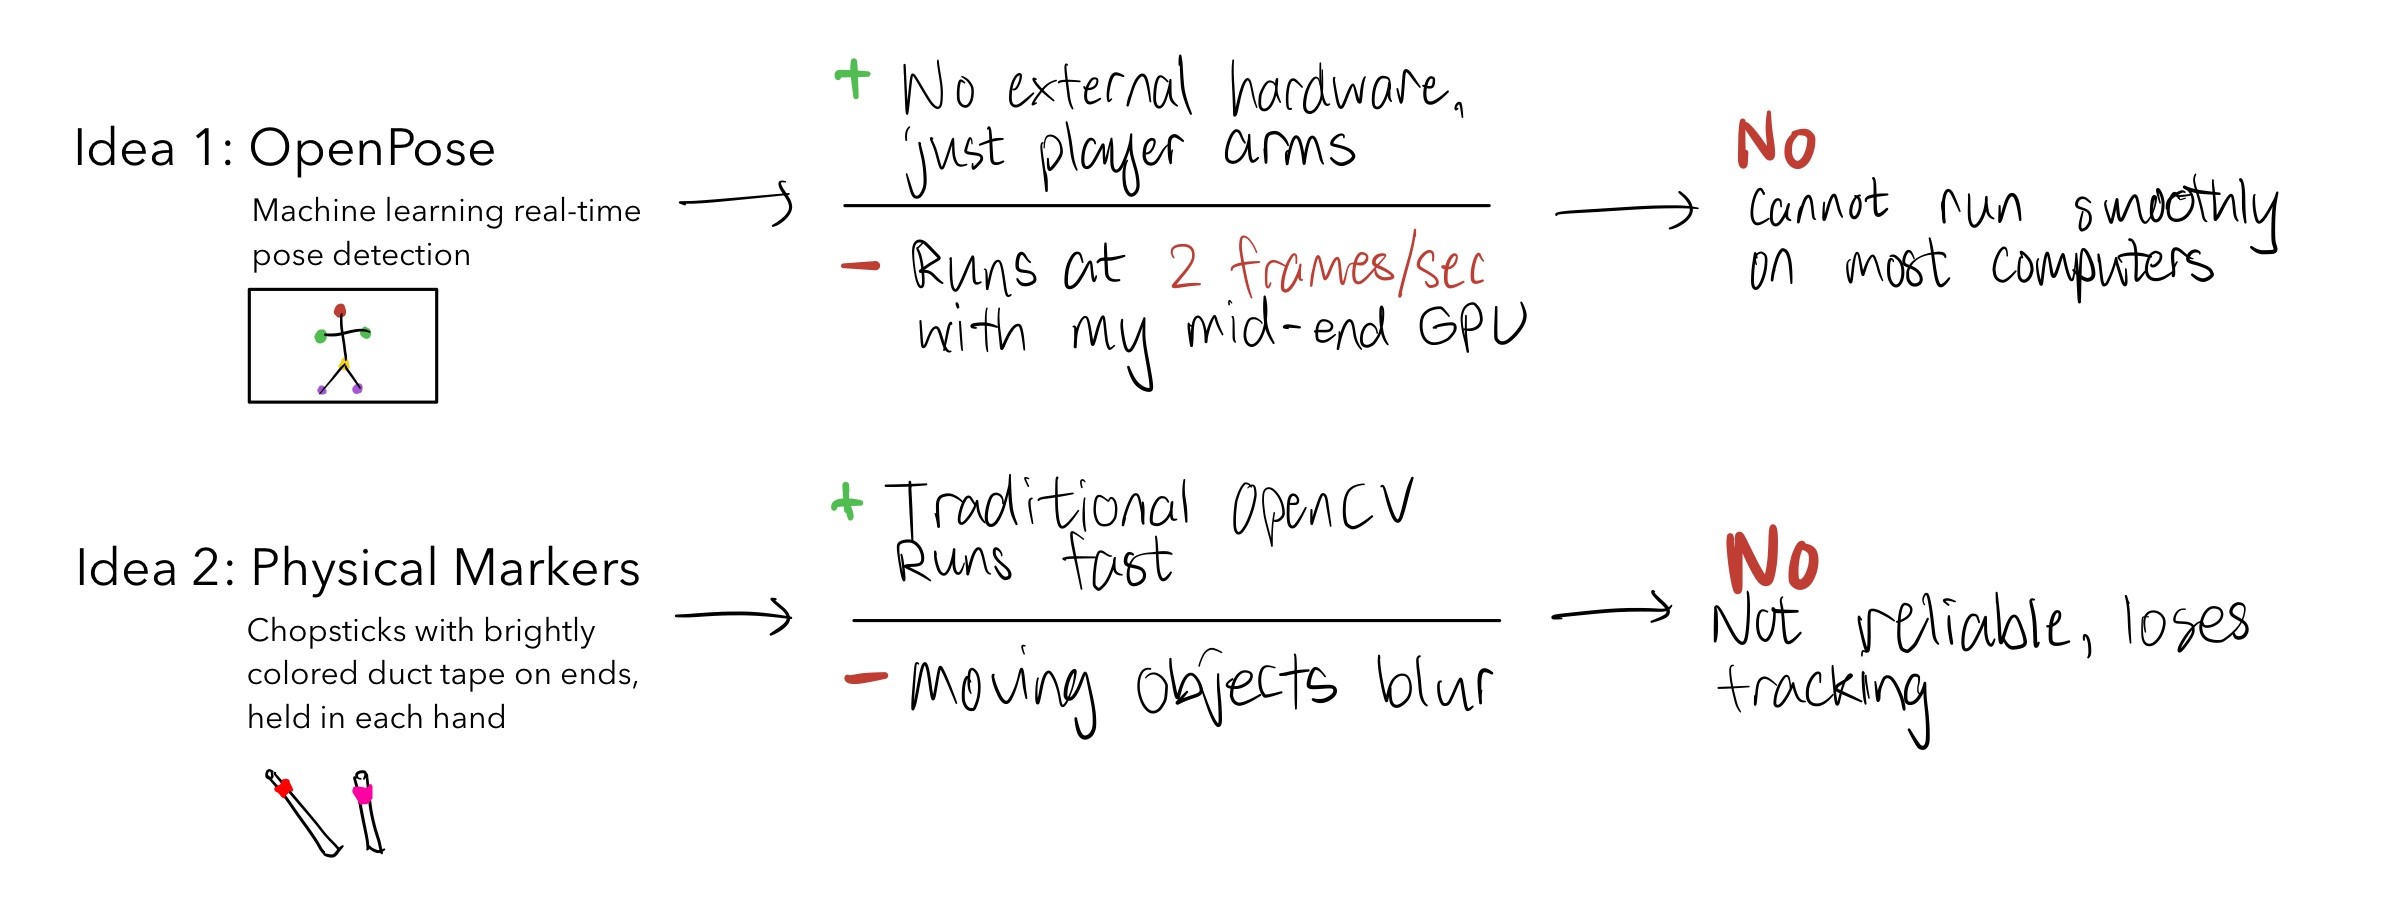 Idea 1: OpenPose
Machine learning real-time
pose detection
+ No external hardware,
just player arms
- Runs at 2 frames/sec
with my mid-end GPU
No
cannot run smoothly
on most computers
Idea 2: Physical Markers
Chopsticks with brightly
colored duct tape on ends,
held in each hand
+ Traditional OpenCV
Runs fast
- Moving objects blur
No
Not reliable, loses
tracking